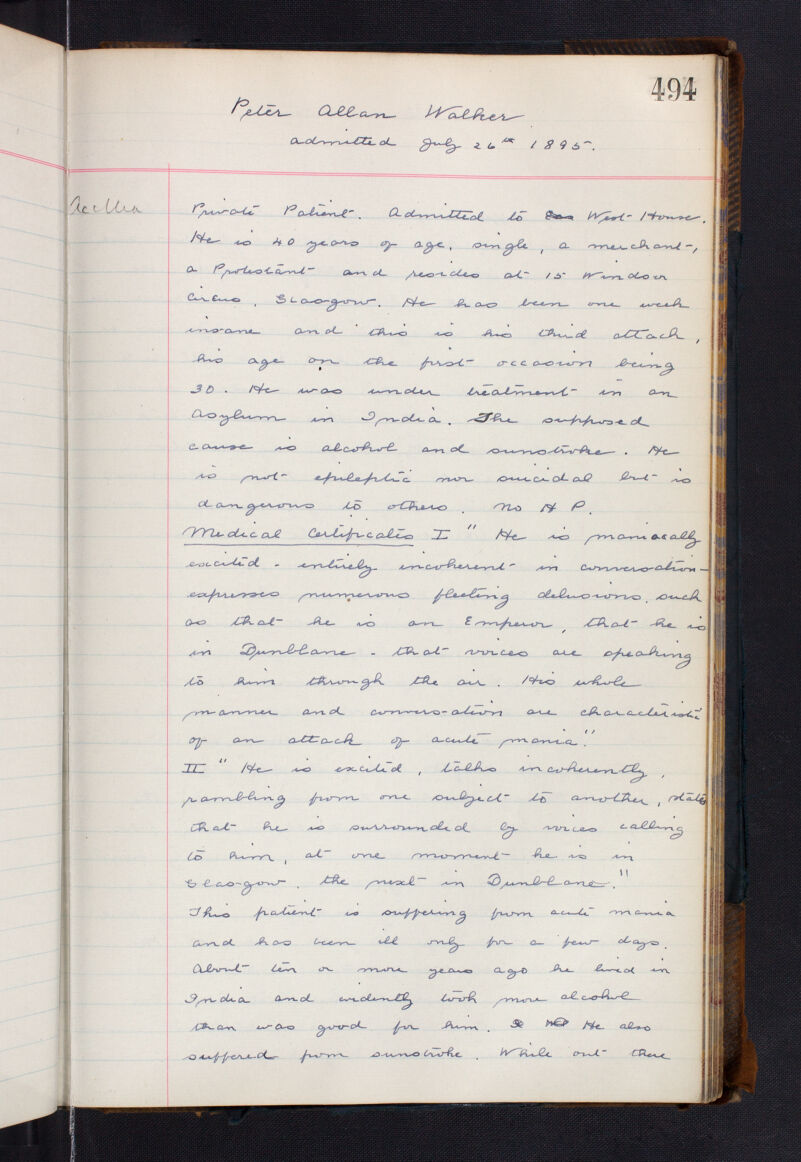 494
Peter Allan Walker
admitted July 26th 1895.
Private Patient. Admitted to West House.
He is 40 years of age, single, a merchant,
a Protestant and resides at 15 Windsor
Circus, Glasgow. He has been one week
insane and this is his third attack,
his age on the first occasion being
30. He was under treatment in an
Asylum in India. The supposed
cause is alcohol and sunstroke. He
is not epileptic nor suicidal but is
dangerous to others. No H P.
Medical Certificates I " He is maniacally
excited - entirely incoherent in conversation -
expresses numerous fleeting delusions, such
as that he is an Emperor, that he is
in Dunblane - that voices are speaking
to him through the air. His whole
manner and conversation are characteristic
of an attack of acute mania."
II " He is excited, talks incoherently,
rambling from one subject to another, states
that he is surrounded by voices calling
to him, at one moment he is in
Glasgow, the next in Dunblane."
This patient is suffering from acute mania
and has been ill only for a few days.
About ten or more years ago he lived in
India and evidently took more alcohol
than was good for him. He also
suffered from sunstroke. While out there